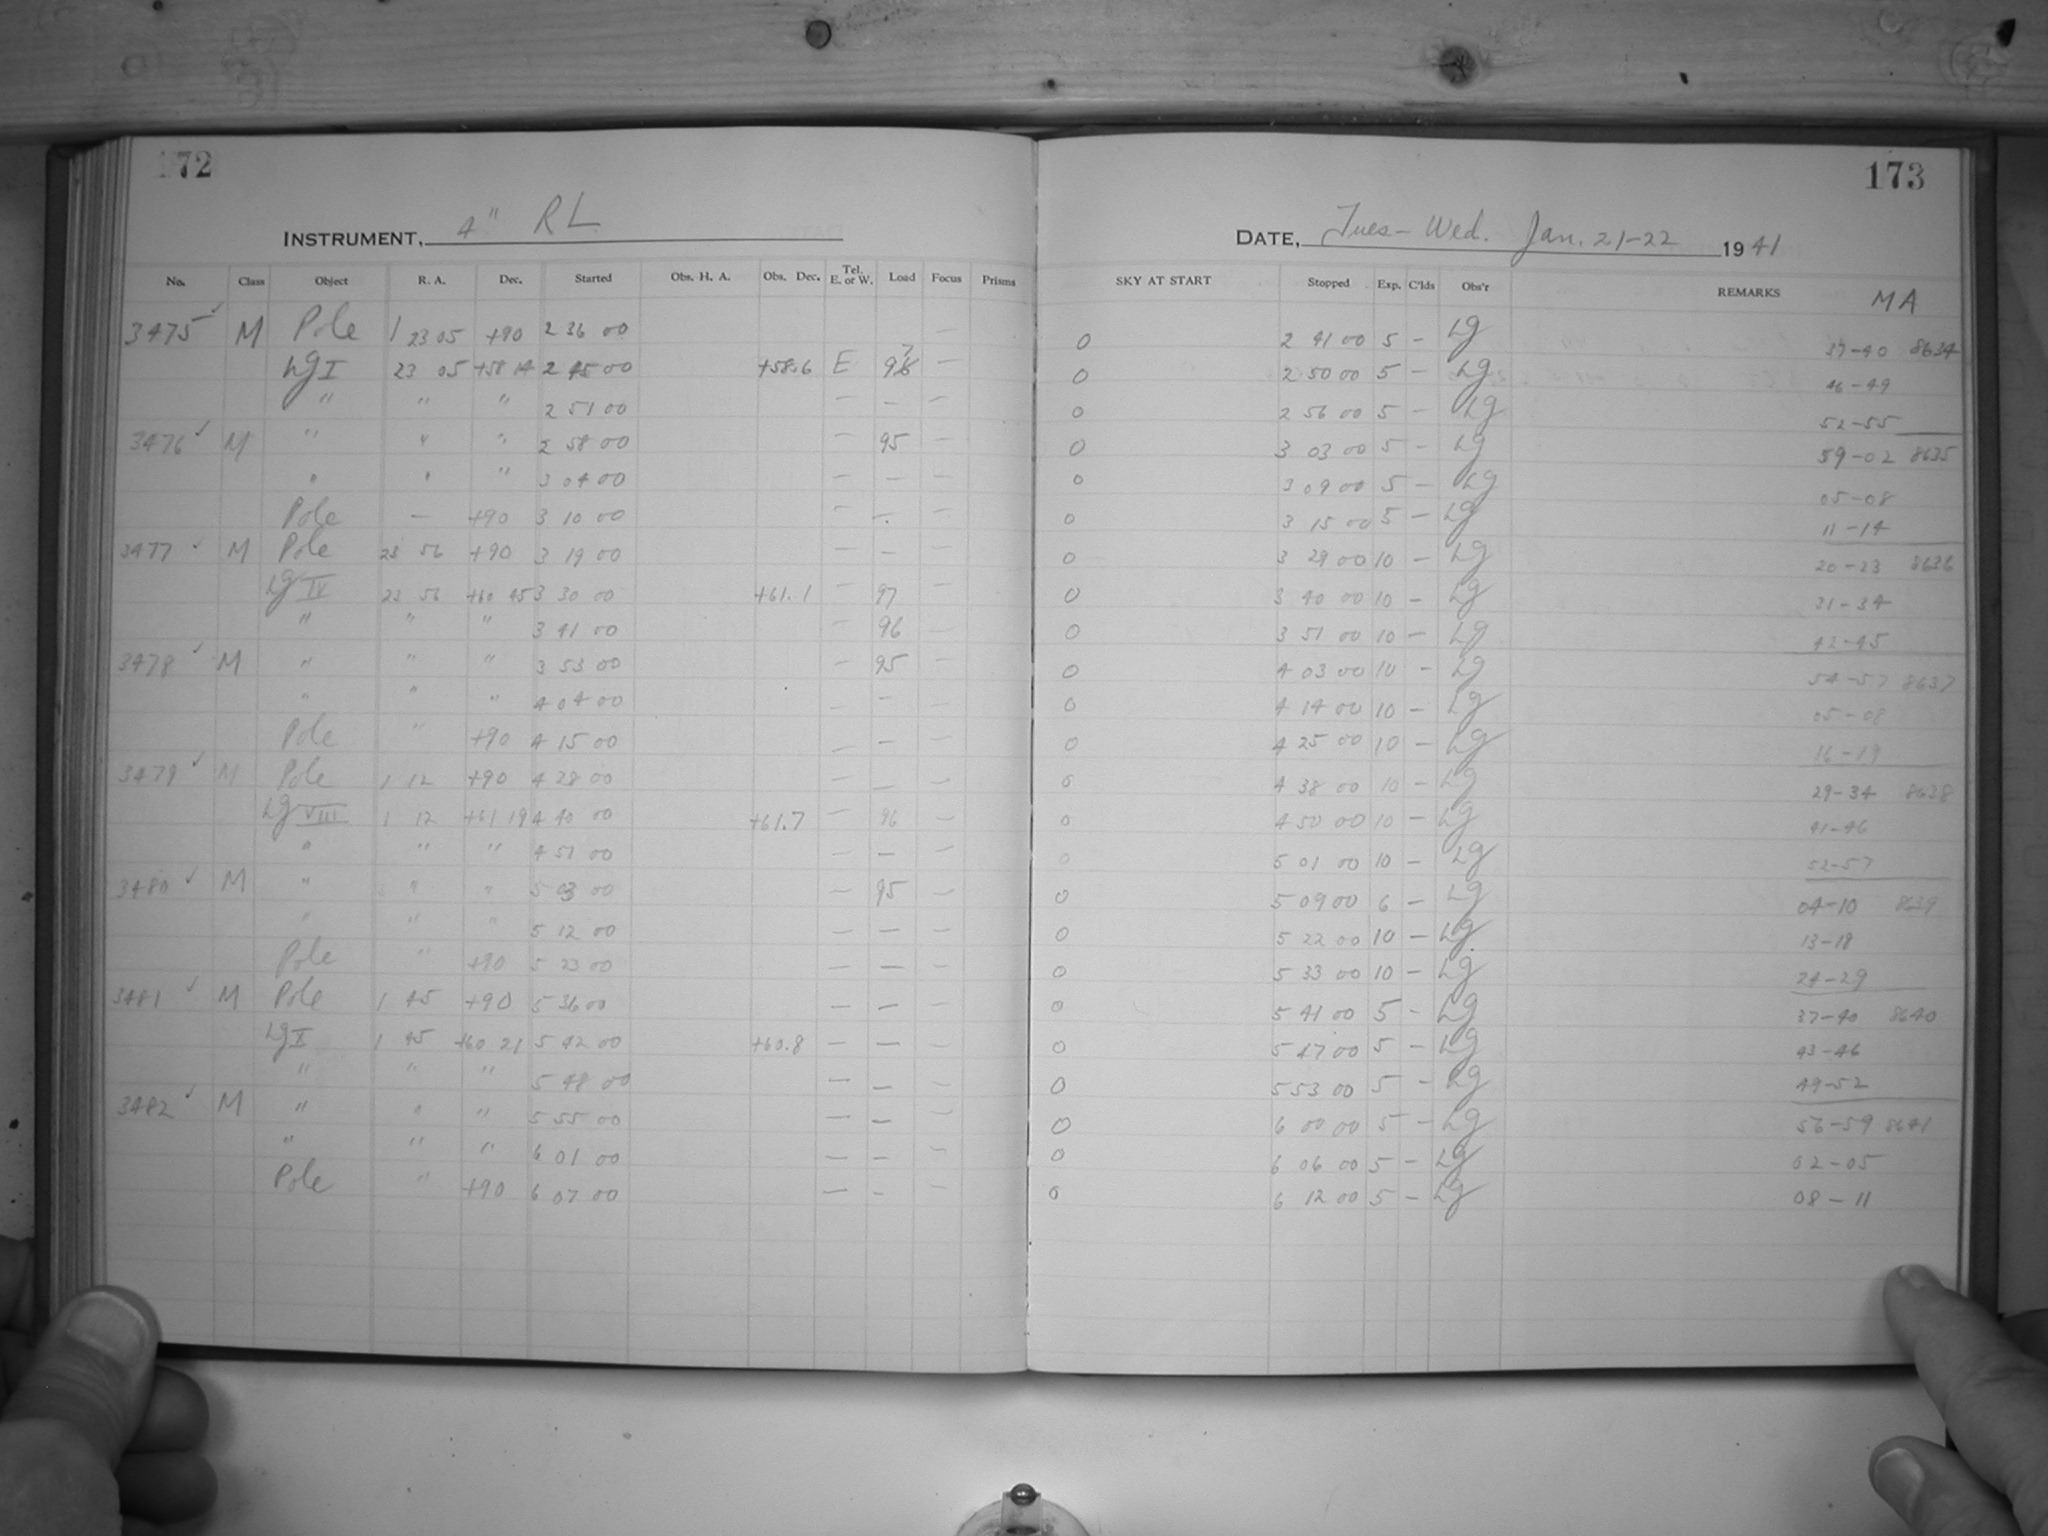 172
173
INSTRUMENT, 4" RL
DATE, Tues - Wed. Jan. 21-22 1941
No. Class Object R. A. Dec. Started Obs. H. A. Obs. Dec. Tel. E. or W. Load Focus Prisms SKY AT START Stopped Exp. C'lds Obs'r REMARKS MA
3475 ✓ M Pole 1 23 05 +90 2 36 00 — 0 2 41 00 5 — Lg 37-40 8634
Lg I 23 05 +58 14 2 45 00 +58.6 E — 0 2 50 00 5 — Lg 46-49
" " " 2 51 00 — — — 0 2 56 00 5 — Lg 52-55
3476 ✓ M " " " 2 58 00 — 95 — 0 3 03 00 5 — Lg 59-02 8635
" " " 3 04 00 — — — 0 3 09 00 5 — Lg 05-08
Pole — +90 3 10 00 — — — 0 3 15 00 5 — Lg 11-14
3477 ✓ M Pole 23 56 +90 3 19 00 — — — 0 3 29 00 10 — Lg 20-23 8636
Lg IV 23 56 +60 45 3 30 00 +61.1 — 97 — 0 3 40 00 10 — Lg 31-34
" " " 3 41 00 — 96 — 0 3 51 00 10 — Lg 42-45
3478 ✓ M " " " 3 53 00 — 95 — 0 4 03 00 10 — Lg 54-57 8637
" " " 4 04 00 — — — 0 4 14 00 10 — Lg 05-08
Pole " +90 4 15 00 — — — 0 4 25 00 10 — Lg 16-19
3479 ✓ M Pole 1 12 +90 4 28 00 — — — 0 4 38 00 10 — Lg 29-34 8638
Lg VIII 1 12 +61 19 4 40 00 +61.7 — 96 — 0 4 50 00 10 — Lg 41-46
" " " 4 51 00 — — — 0 5 01 00 10 — Lg 52-57
3480 ✓ M " " " 5 03 00 — 95 — 0 5 09 00 6 — Lg 04-10 8639
" " " 5 12 00 — — — 0 5 22 00 10 — Lg 13-18
Pole " +90 5 23 00 — — — 0 5 33 00 10 — Lg 24-29
3481 ✓ M Pole 1 45 +90 5 36 00 — — — 0 5 41 00 5 — Lg 37-40 8640
Lg X 1 45 +60 21 5 42 00 +60.8 — — — 0 5 47 00 5 — Lg 43-46
" " " 5 48 00 — — — 0 5 53 00 5 — Lg 49-52
3482 ✓ M " " " 5 55 00 — — — 0 6 00 00 5 — Lg 56-59 8641
" " " 6 01 00 — — — 0 6 06 00 5 — Lg 02-05
Pole " +90 6 07 00 — — — 0 6 12 00 5 — Lg 08-11